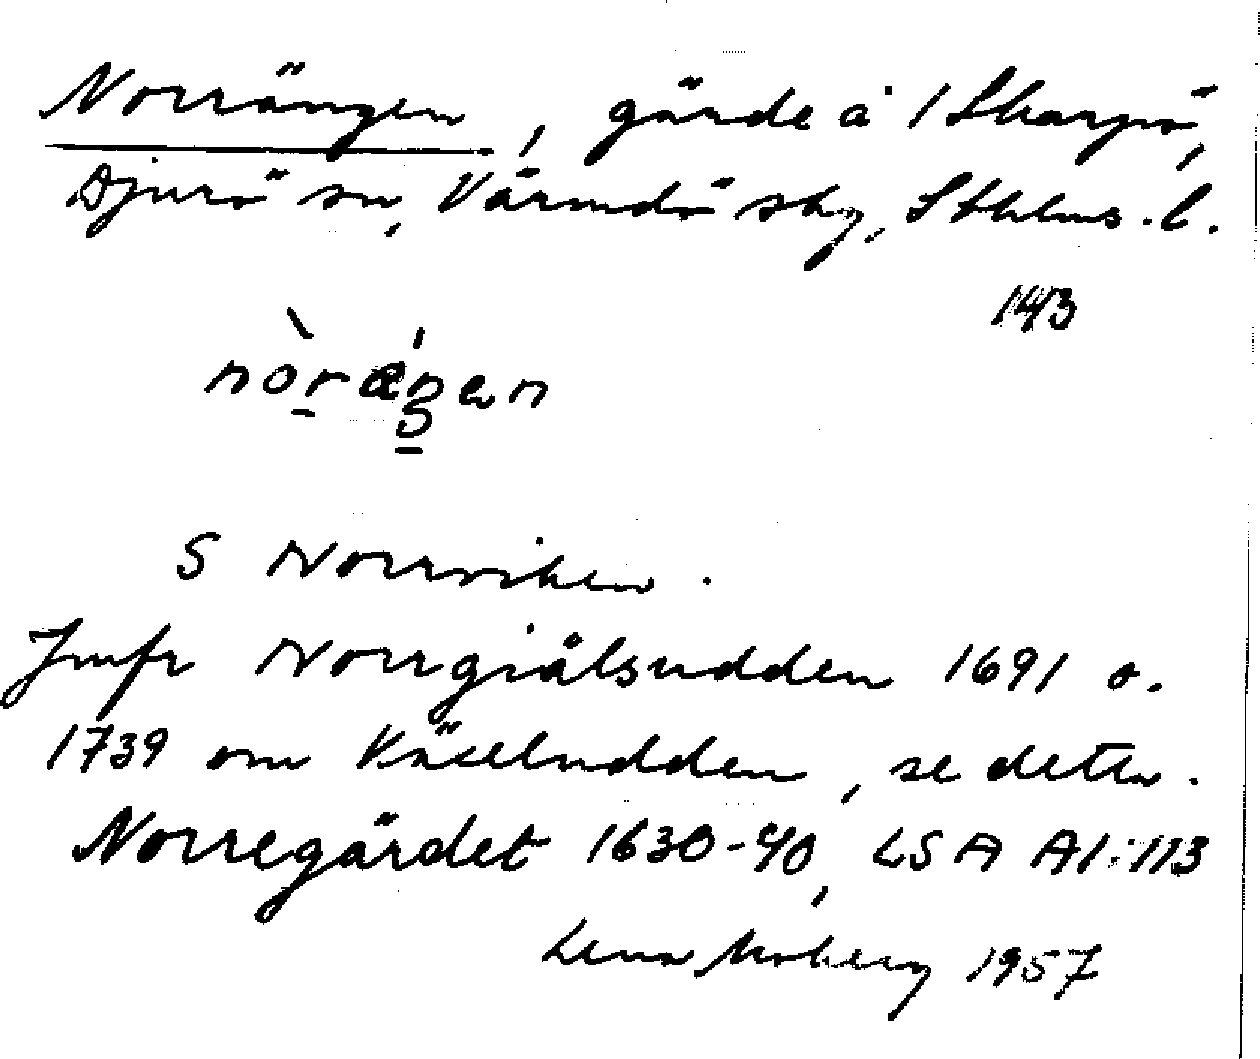 Norrängen, gärde å 1 Skarpö,
Djurö sn, Värmdö skg, Sthlms. l.
143
nòrǽŋen
S Norrviken.
Jmfr Norrgiälsudden 1691 o.
1739 om Käseludden, se detta.
Norregärdet 1630-40, LSA A1:113
Lena Moberg 1957